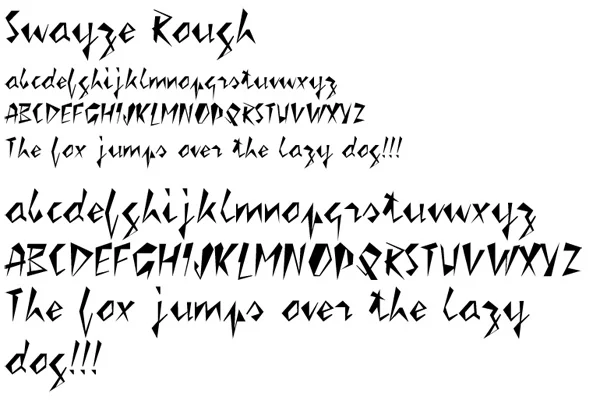 Swayze Rough
abcdefghijklmnopqrstuvwxyz
ABCDEFGHIJKLMNOPQRSTUVWXYZ
The fox jumps over the lazy dog!!!
abcdefghijklmnopqrstuvwxyz
ABCDEFGHIJKLMNOPQRSTUVWXYZ
The fox jumps over the lazy
dog!!!